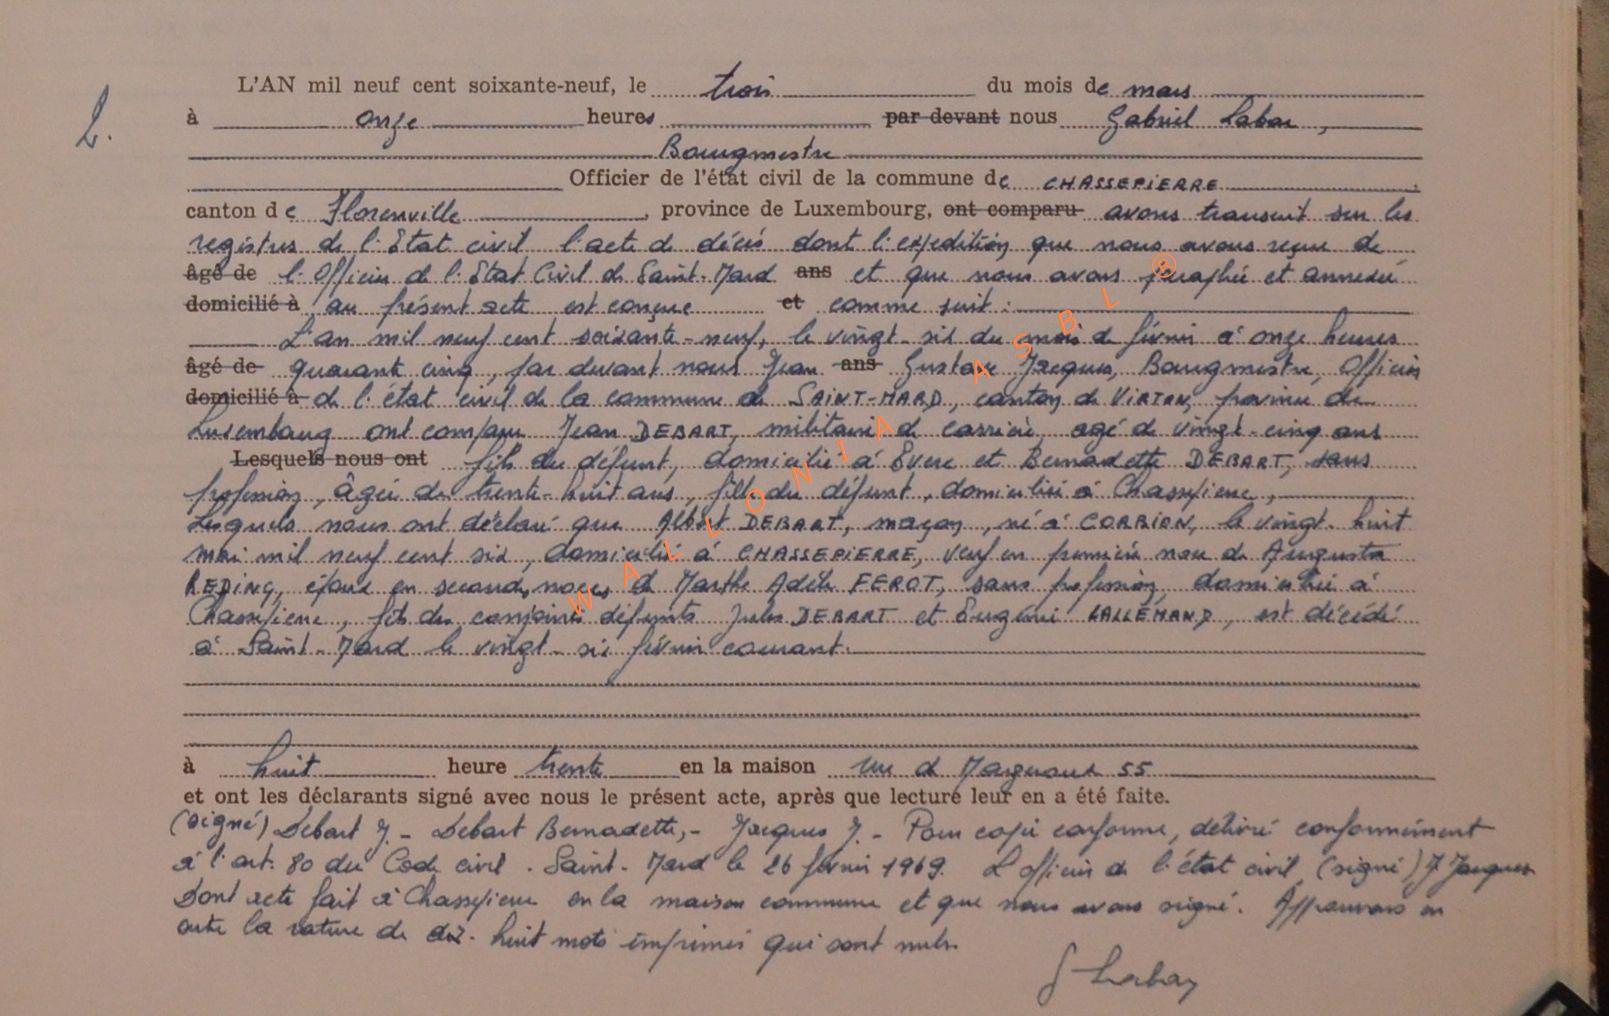 2.
L'AN mil neuf cent soixante-neuf, le trois du mois de mars
à onze heures par devant nous Gabriel Labar,
Bourgmestre
Officier de l'état civil de la commune de CHASSEPIERRE
canton de Florenville, province de Luxembourg, ont comparu avons transcrit sur les
registres de l'Etat civil l'acte de décès dont l'expédition que nous avons reçue de
âgé de l'Officier de l'Etat Civil de Saint-Mard ans et que nous avons paraphée et annexée
domicilié à au présent acte est conçue et comme suit :
L'an mil neuf cent soixante-neuf, le vingt-six du mois de février à onze heures
âgé de quarante cinq, par devant nous Jean ans Gustave Jacques, Bourgmestre, Officier
domicilié à de l'état civil de la commune de SAINT-MARD, canton de VIRTON, province de
Luxembourg ont comparu Jean DEBART, militaire de carrière, agé de vingt-cinq ans
Lesquels nous ont fils du défunt, domicilié à Evere et Bernadette DEBART, sans
profession, âgée de trente-huit ans, fille du défunt, domiciliée à Chassepierre,
Lesquels nous ont déclaré que Albert DEBART, maçon, né à CORBION, le vingt-huit
mai mil neuf cent six, domicilié à CHASSEPIERRE, veuf en premières noces de Augusta
REDING, époux en secondes noces de Marthe Adèle FEROT, sans profession, domiciliée à
Chassepierre, fils des conjoints défunts Jules DEBART et Eugénie LALLEMAND, est décédé
à Saint-Mard le vingt-six février courant.
à huit heure trente en la maison rue d 55
et ont les déclarants signé avec nous le présent acte, après que lecture leur en a été faite.
(signé) Debart J. - Debart Bernadette, - Jacques J. - Pour copie conforme, délivré conformément
à l'art. 80 du Code civil. Saint-Mard le 26 février 1969. L'officier de l'état civil (signé) J Jacques
Dont acte fait à Chassepierre en la maison commune et que nous avons signé. Approuvons en
outre la rature de dix-huit mots imprimés qui sont nuls.
G Labar
WALLONIA ASBL ®